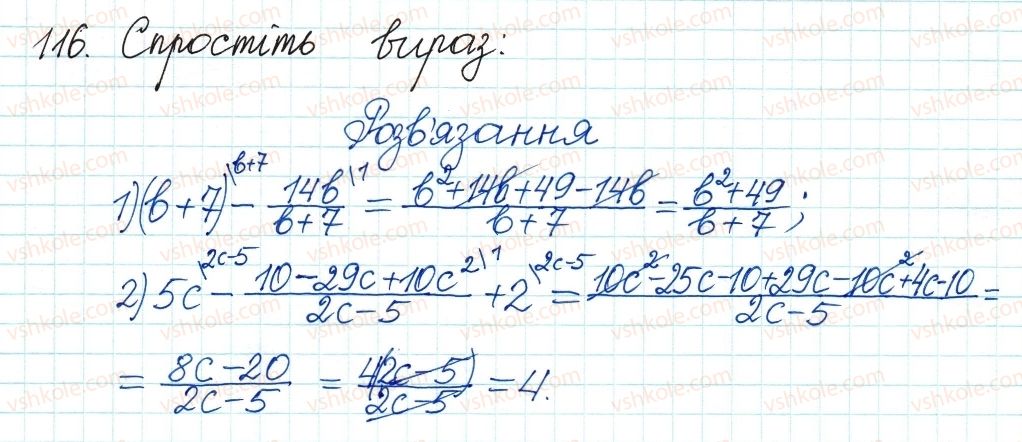 116. Спростіть вираз:
Розв'язання
1) (b+7)\b+7 − 14b\1 / b+7 = b²+14b+49−14b / b+7 = b²+49 / b+7 ;
2) 5c\2c−5 − 10−29c+10c²\1 / 2c−5 + 2\2c−5 = 10c²−25c−10+29c−10c²+4c−10 / 2c−5 =
= 8c−20 / 2c−5 = 4(2c−5) / 2c−5 = 4.